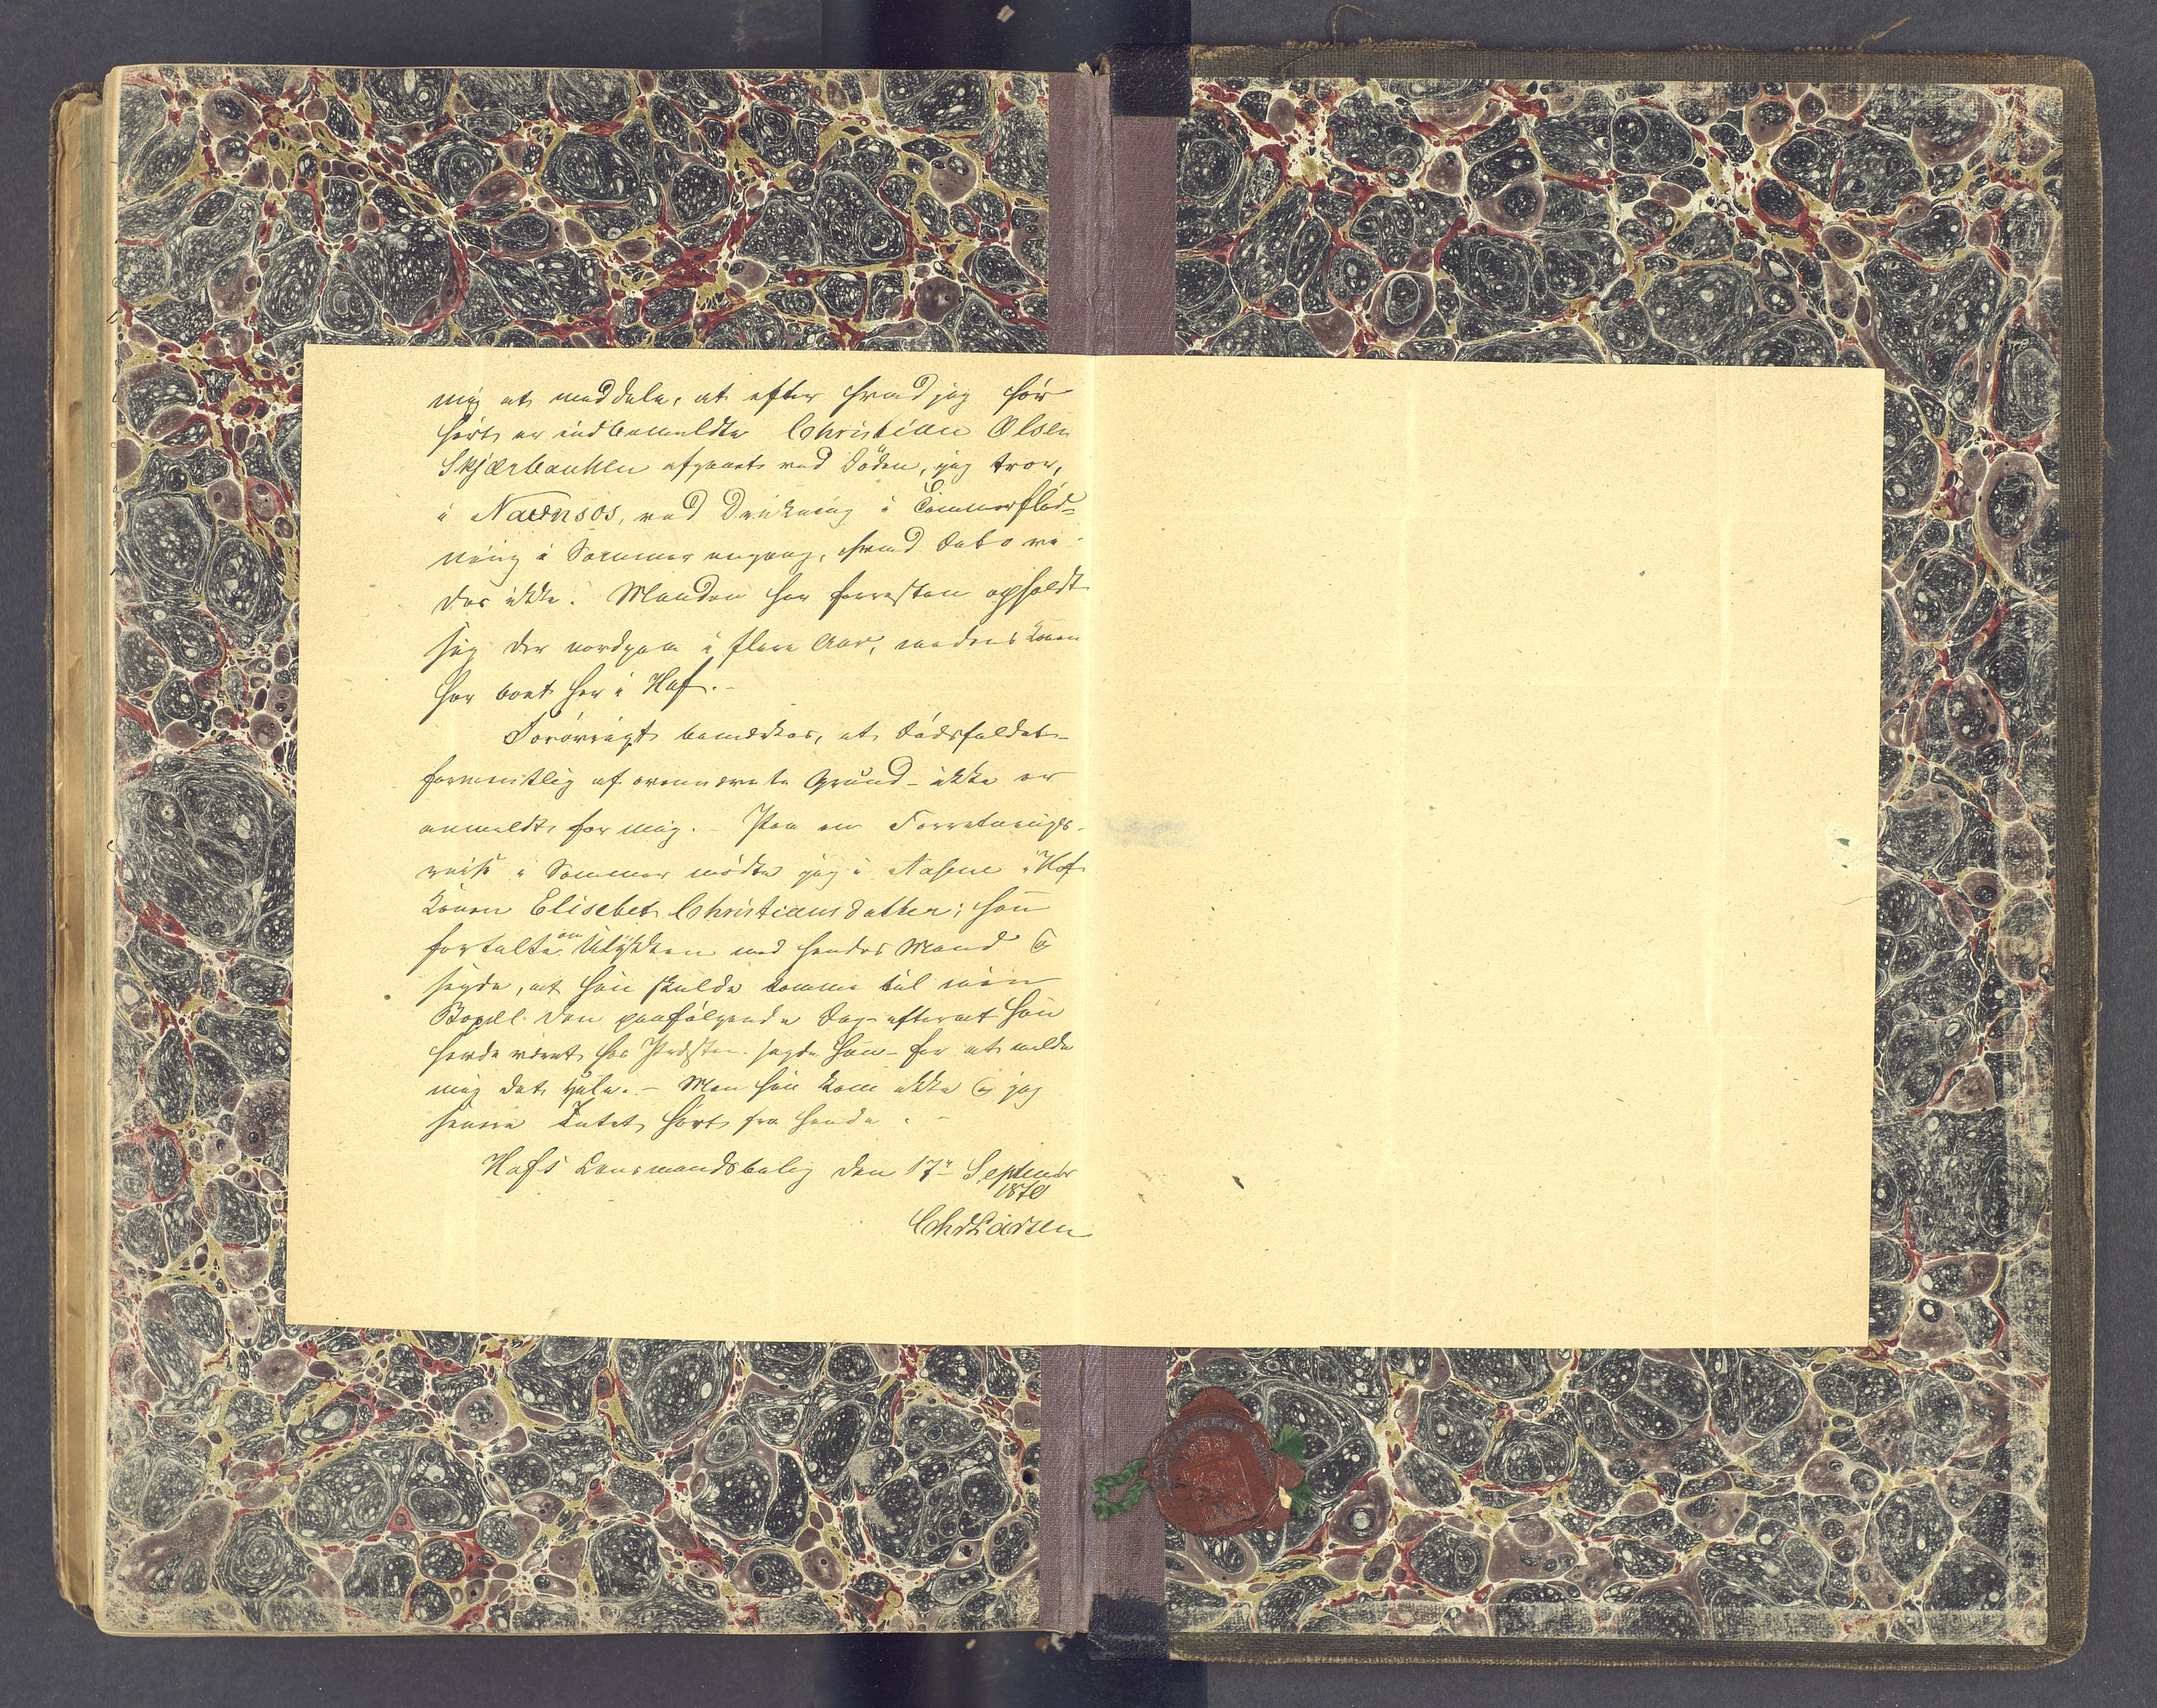 mig at meddele, at efter hvad jeg har
hørt er indbemeldte Christian Olsen
Skjærbækken afgaaet ved Døden, jeg tror,
i Namsos, ved Drukning i Tømmerflød-
ning i Sommer engang, hvad Dato vi-
des ikke. Manden har forresten opholdt
sig der nordpaa i flere Aar, medens Konen
har boet her i Hof.-
Forøvrigt bemærkes, at Dødsfaldet-
formentlig af ovennævnte Grund- ikke er
anmeldt for mig. - Paa en Forretnings-
reise i Sommer mødte jeg i Aasene i Hof
Konen Elisebet Christiansdatter; hun
fortalte om Ulykken med hendes Mand &
sagde, at hun skulde komme til min
Bopæl den paafølgende Dag efterat hun
havde været hos Præsten- sagde hun- for at melde
mig det hele. - Men hun kom ikke & jeg
senere Intet hørt fra hende. -
Hofs Lensmandsbolig den 17de Septembr
1870
Chr Larsen